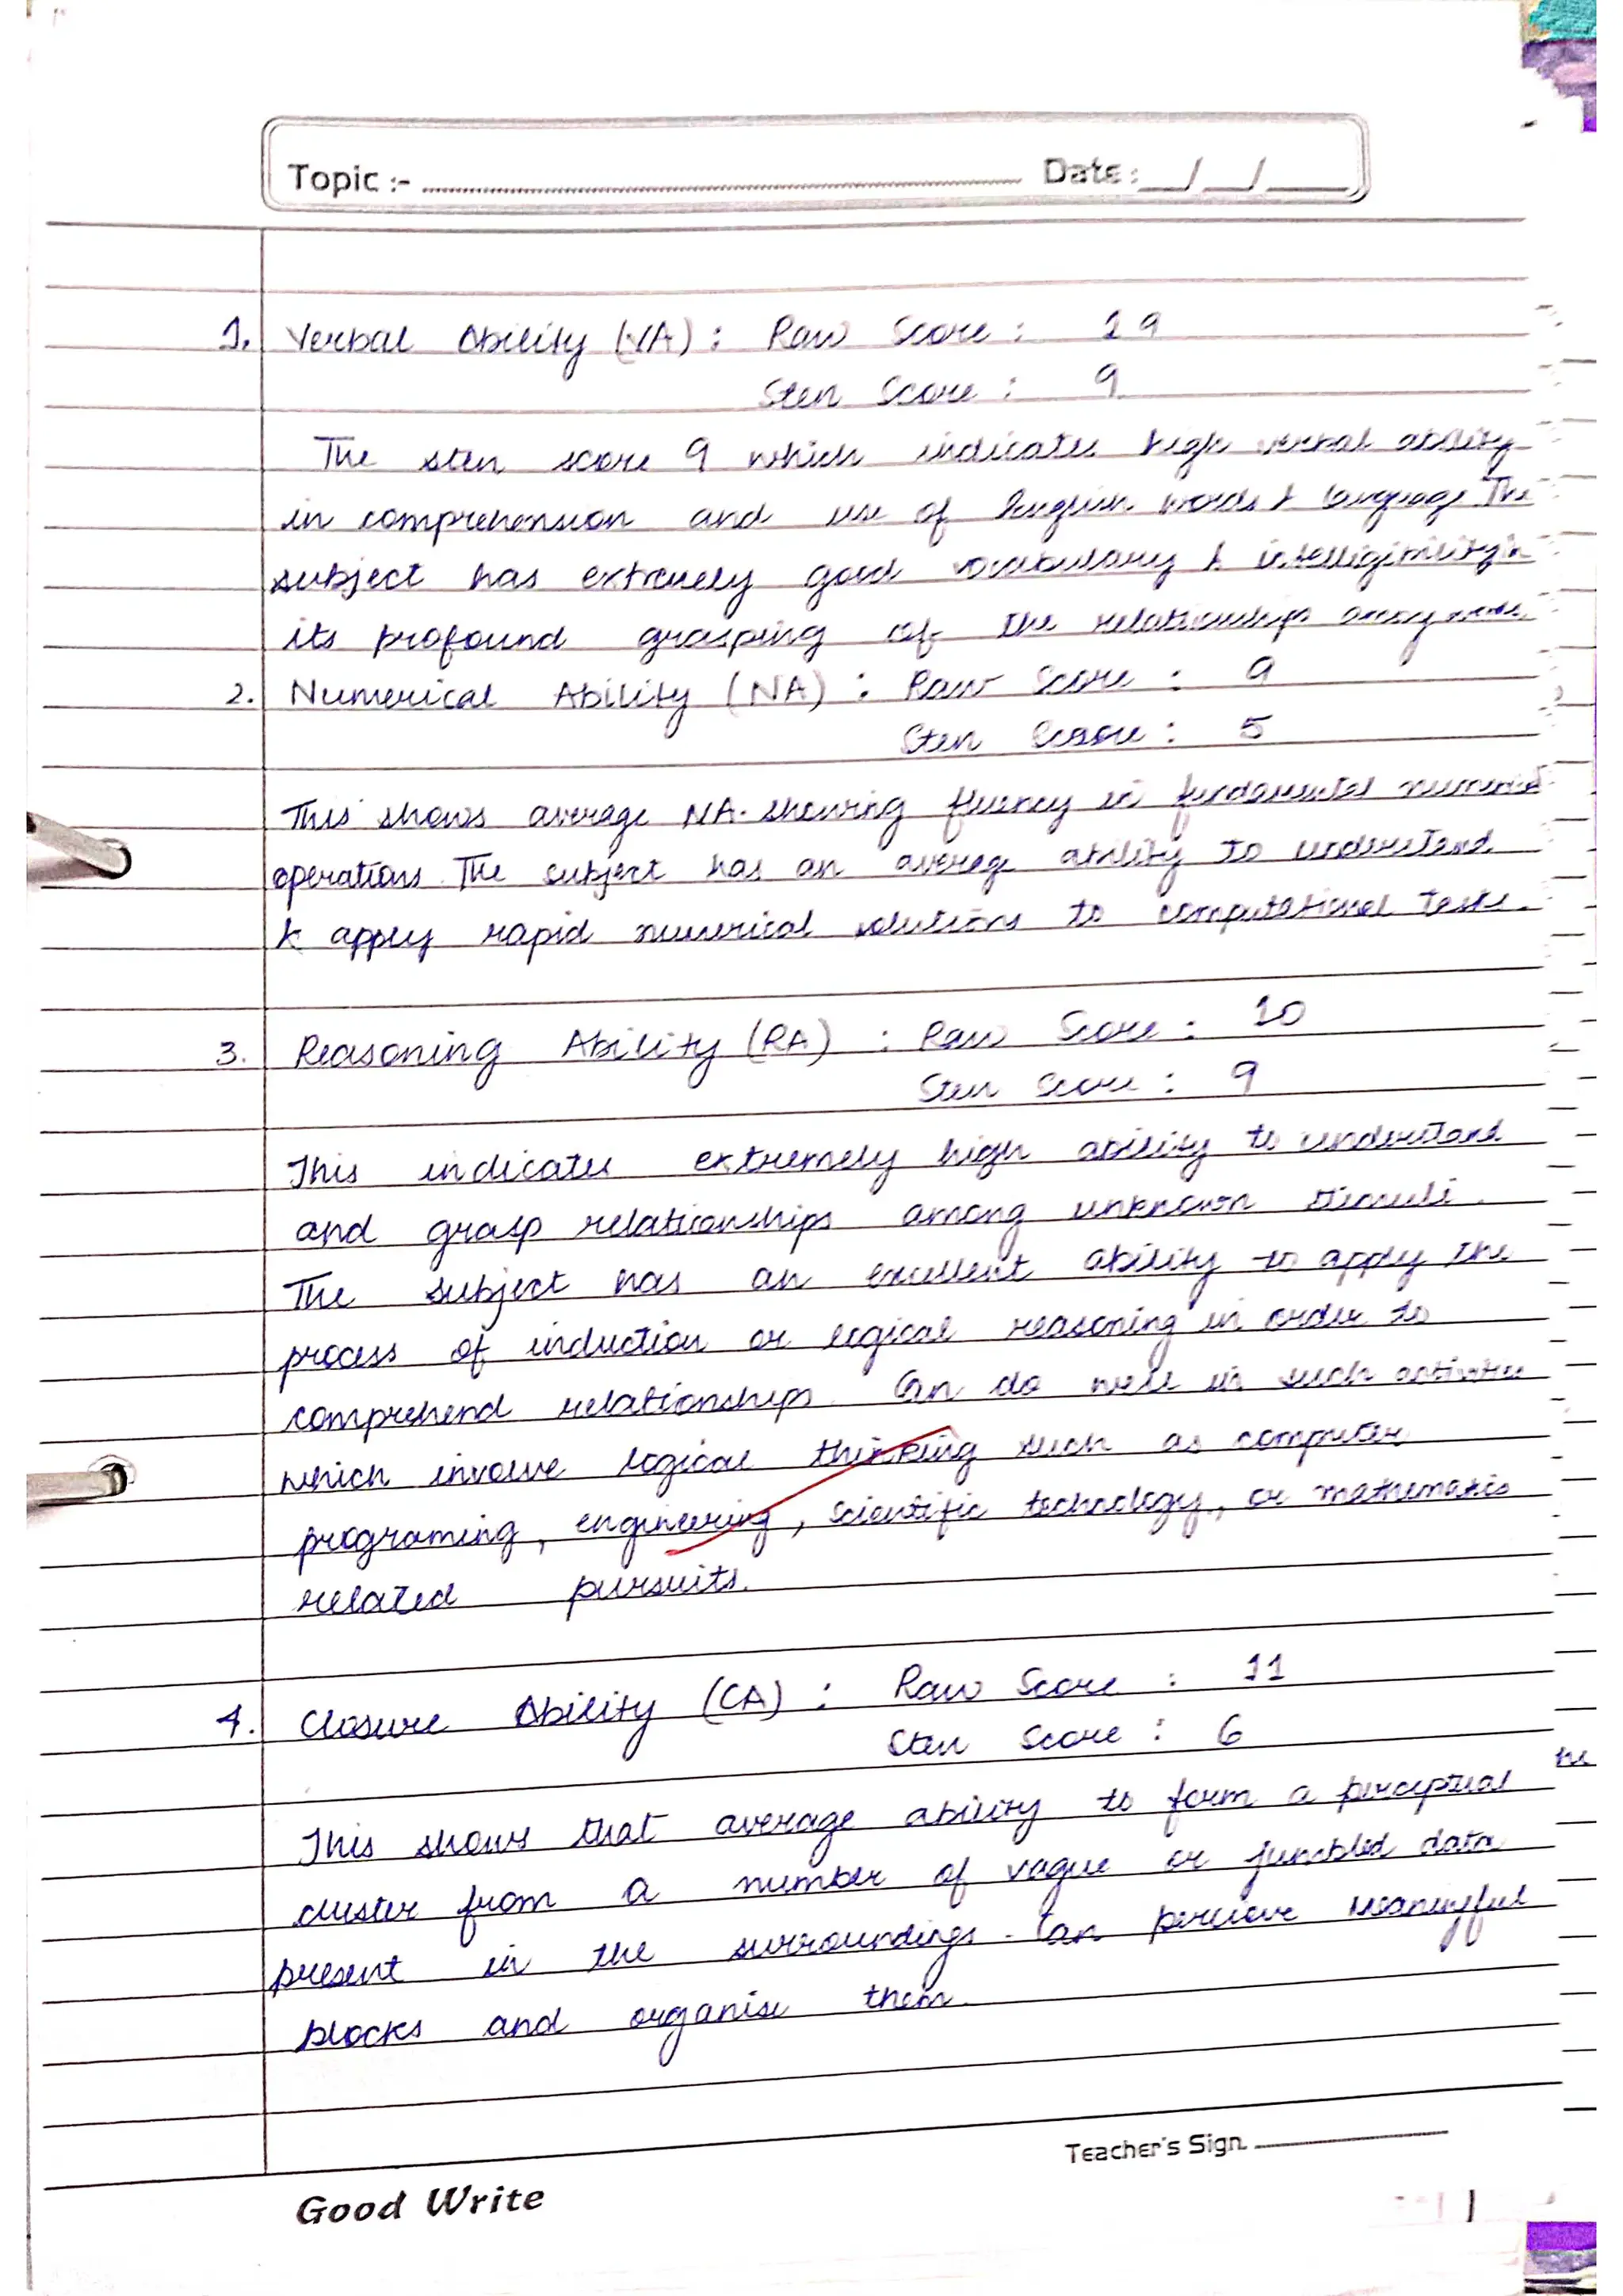 Topic :- Date : __/__/__
1. Verbal Ability (VA) : Raw Score : 19
Sten Score : 9
The sten score 9 which indicates high verbal ability
in comprehension and use of English words & language The
subject has extremely good vocabulary & intelligibility in
its profound grasping of the relationships among words.
2. Numerical Ability (NA) : Raw Score : 9
Sten Score : 5
This shows average NA. showing fluency in fundamental numerical
operations. The subject has an average ability to understand
& apply rapid numerical solutions to computational tasks.
3. Reasoning Ability (RA) : Raw Score : 10
Sten Score : 9
This indicates extremely high ability to understand
and grasp relationships among unknown stimuli.
The subject has an excellent ability to apply the
process of induction or logical reasoning in order to
comprehend relationships. Can do well in such activities
which involve logical thinking such as computer
programing, engineering, scientific technology, or mathematics
related pursuits.
4. Closure Ability (CA) : Raw Score : 11
Sten Score : 6
This shows that average ability to form a perceptual
cluster from a number of vague or jumbled data
present in the surroundings. Can percieve meaningful
blocks and organise them.
Teacher's Sign.
Good Write